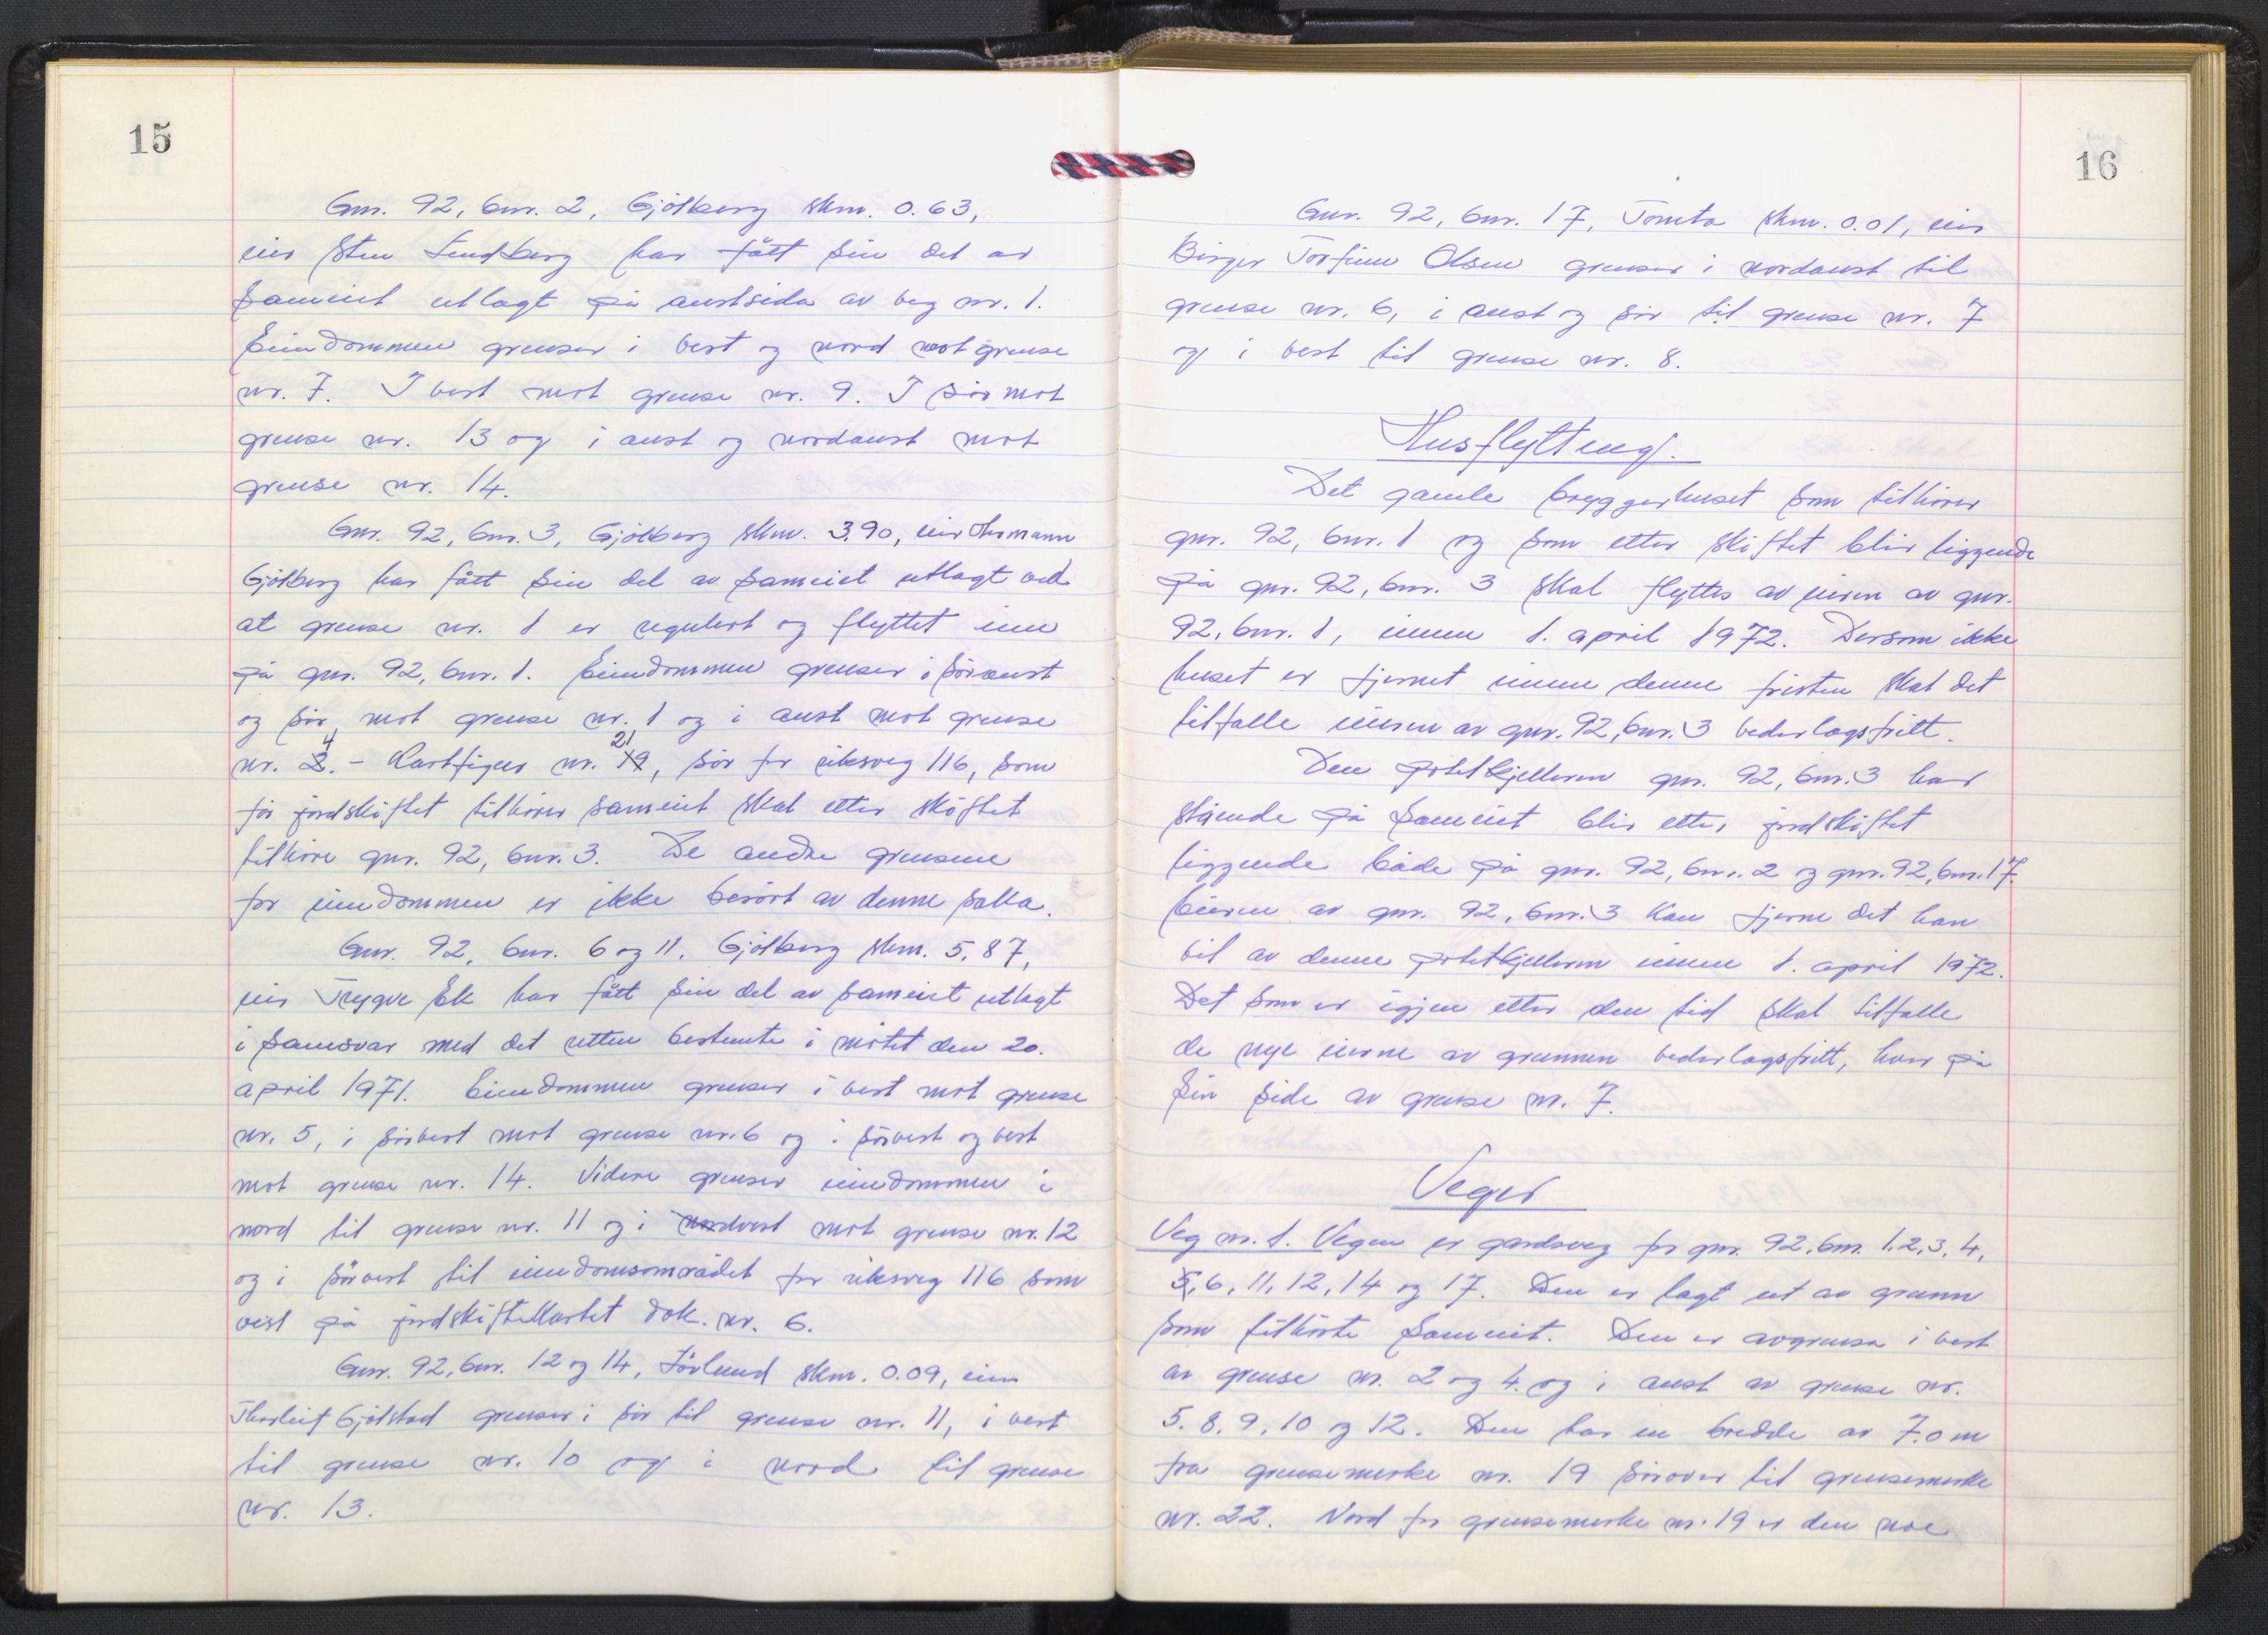 15
Gnr. 92, bnr. 2, Gjölberg skm. 0.63,
eier Sten Lundberg har fått sin del av
sameiet utlagt på austsida av veg nr. 1.
Eiendommen grenser i vest og nord mot grense
nr. 7. I vest mot grense nr. 9. I sör mot
grense nr. 13 og i aust og nordaust mot
grense nr. 14.
Gnr. 92, bnr. 3, Gjölberg skm. 3.90, eier Thormann
Gjölberg har fått sin del av sameiet utlagt ved
at grense nr. 1 er regulert og flyttet inn
på gnr. 92, bnr. 1. Eiendommen grenser i söraust
og sör mot grense nr. 1 og i aust mot grense
nr. 4. - Kartfigur nr. 21, sör for riksveg 116, som
för jordskiftet tilhörer sameiet skal etter skiftet
tilhöre gnr. 92, bnr. 3. De andre grensene
for eiendommen er ikke berört av denne saka.
Gnr. 92, bnr. 6 og 11. Gjölberg skm. 5.87,
eier Trygve Ek har fått sin del av sameiet utlagt
i samsvar med det retten bestemte i mötet den 20.
april 1971. Eiendommen grenser i vest mot grense
nr. 5, i sörvest mot grense nr. 6 og i sörvest og vest
mot grense nr. 14. Videre grenser eiendommen i
nord til grense nr. 11 og i nordvest mot grense nr. 12
og i sörvest til eiendomsområdet for riksveg 116 som
vist på jordskiftekartet dok. nr. 6.
Gnr. 92, bnr. 12 og 14, Lövlund skm. 0.09, eier
Thorleif Gjölstad grenser i sör til grense nr. 11, i vest
til grense nr. 10 og i nord til grense
nr. 13.
16
Gnr. 92, bnr. 17, Tomta skm. 0.01, eier
Birger Torfinn Olsen grenser i nordaust til
grense nr. 6, i aust og sör til grense nr. 7
og i vest til grense nr. 8.
Husflytting.
Det gamle bryggerhuset som tilhörer
gnr. 92, bnr. 1 og som etter skiftet blir liggende
på gnr. 92, bnr. 3 skal flyttes av eieren av gnr.
92, bnr. 1, innen 1. april 1972. Dersom ikke
huset er fjernet innen denne fristen skal det
tilfalle eieren av gnr. 92, bnr. 3 vederlagsfritt.
Den potetkjelleren gnr. 92, bnr. 3 har
stående på sameiet blir etter jordskiftet
liggende både på gnr. 92, bnr. 2 og gnr. 92, bnr. 17.
Eieren av gnr. 92, bnr. 3 kan fjerne det han
vil av denne potetkjelleren innen 1. april 1972.
Det som er igjen etter den tid skal tilfalle
de nye eierne av grunnen vederlagsfritt, hver på
sin side av grense nr. 7.
Veger
Veg nr. 1. Vegen er gardsveg for gnr. 92, bnr. 1, 2, 3, 4,
5, 6, 11, 12, 14 og 17. Den er lagt ut av grunn
som tilhörte sameiet. Den er avgrensa i vest
av grense nr. 2 og 4. og i aust av grense nr.
5. 8, 9, 10 og 12. Den har en bredde av 7.0 m
fra grensemerke nr. 19 sörover til grensemerke
nr. 22. Nord for grensemerke nr. 19 er den noe